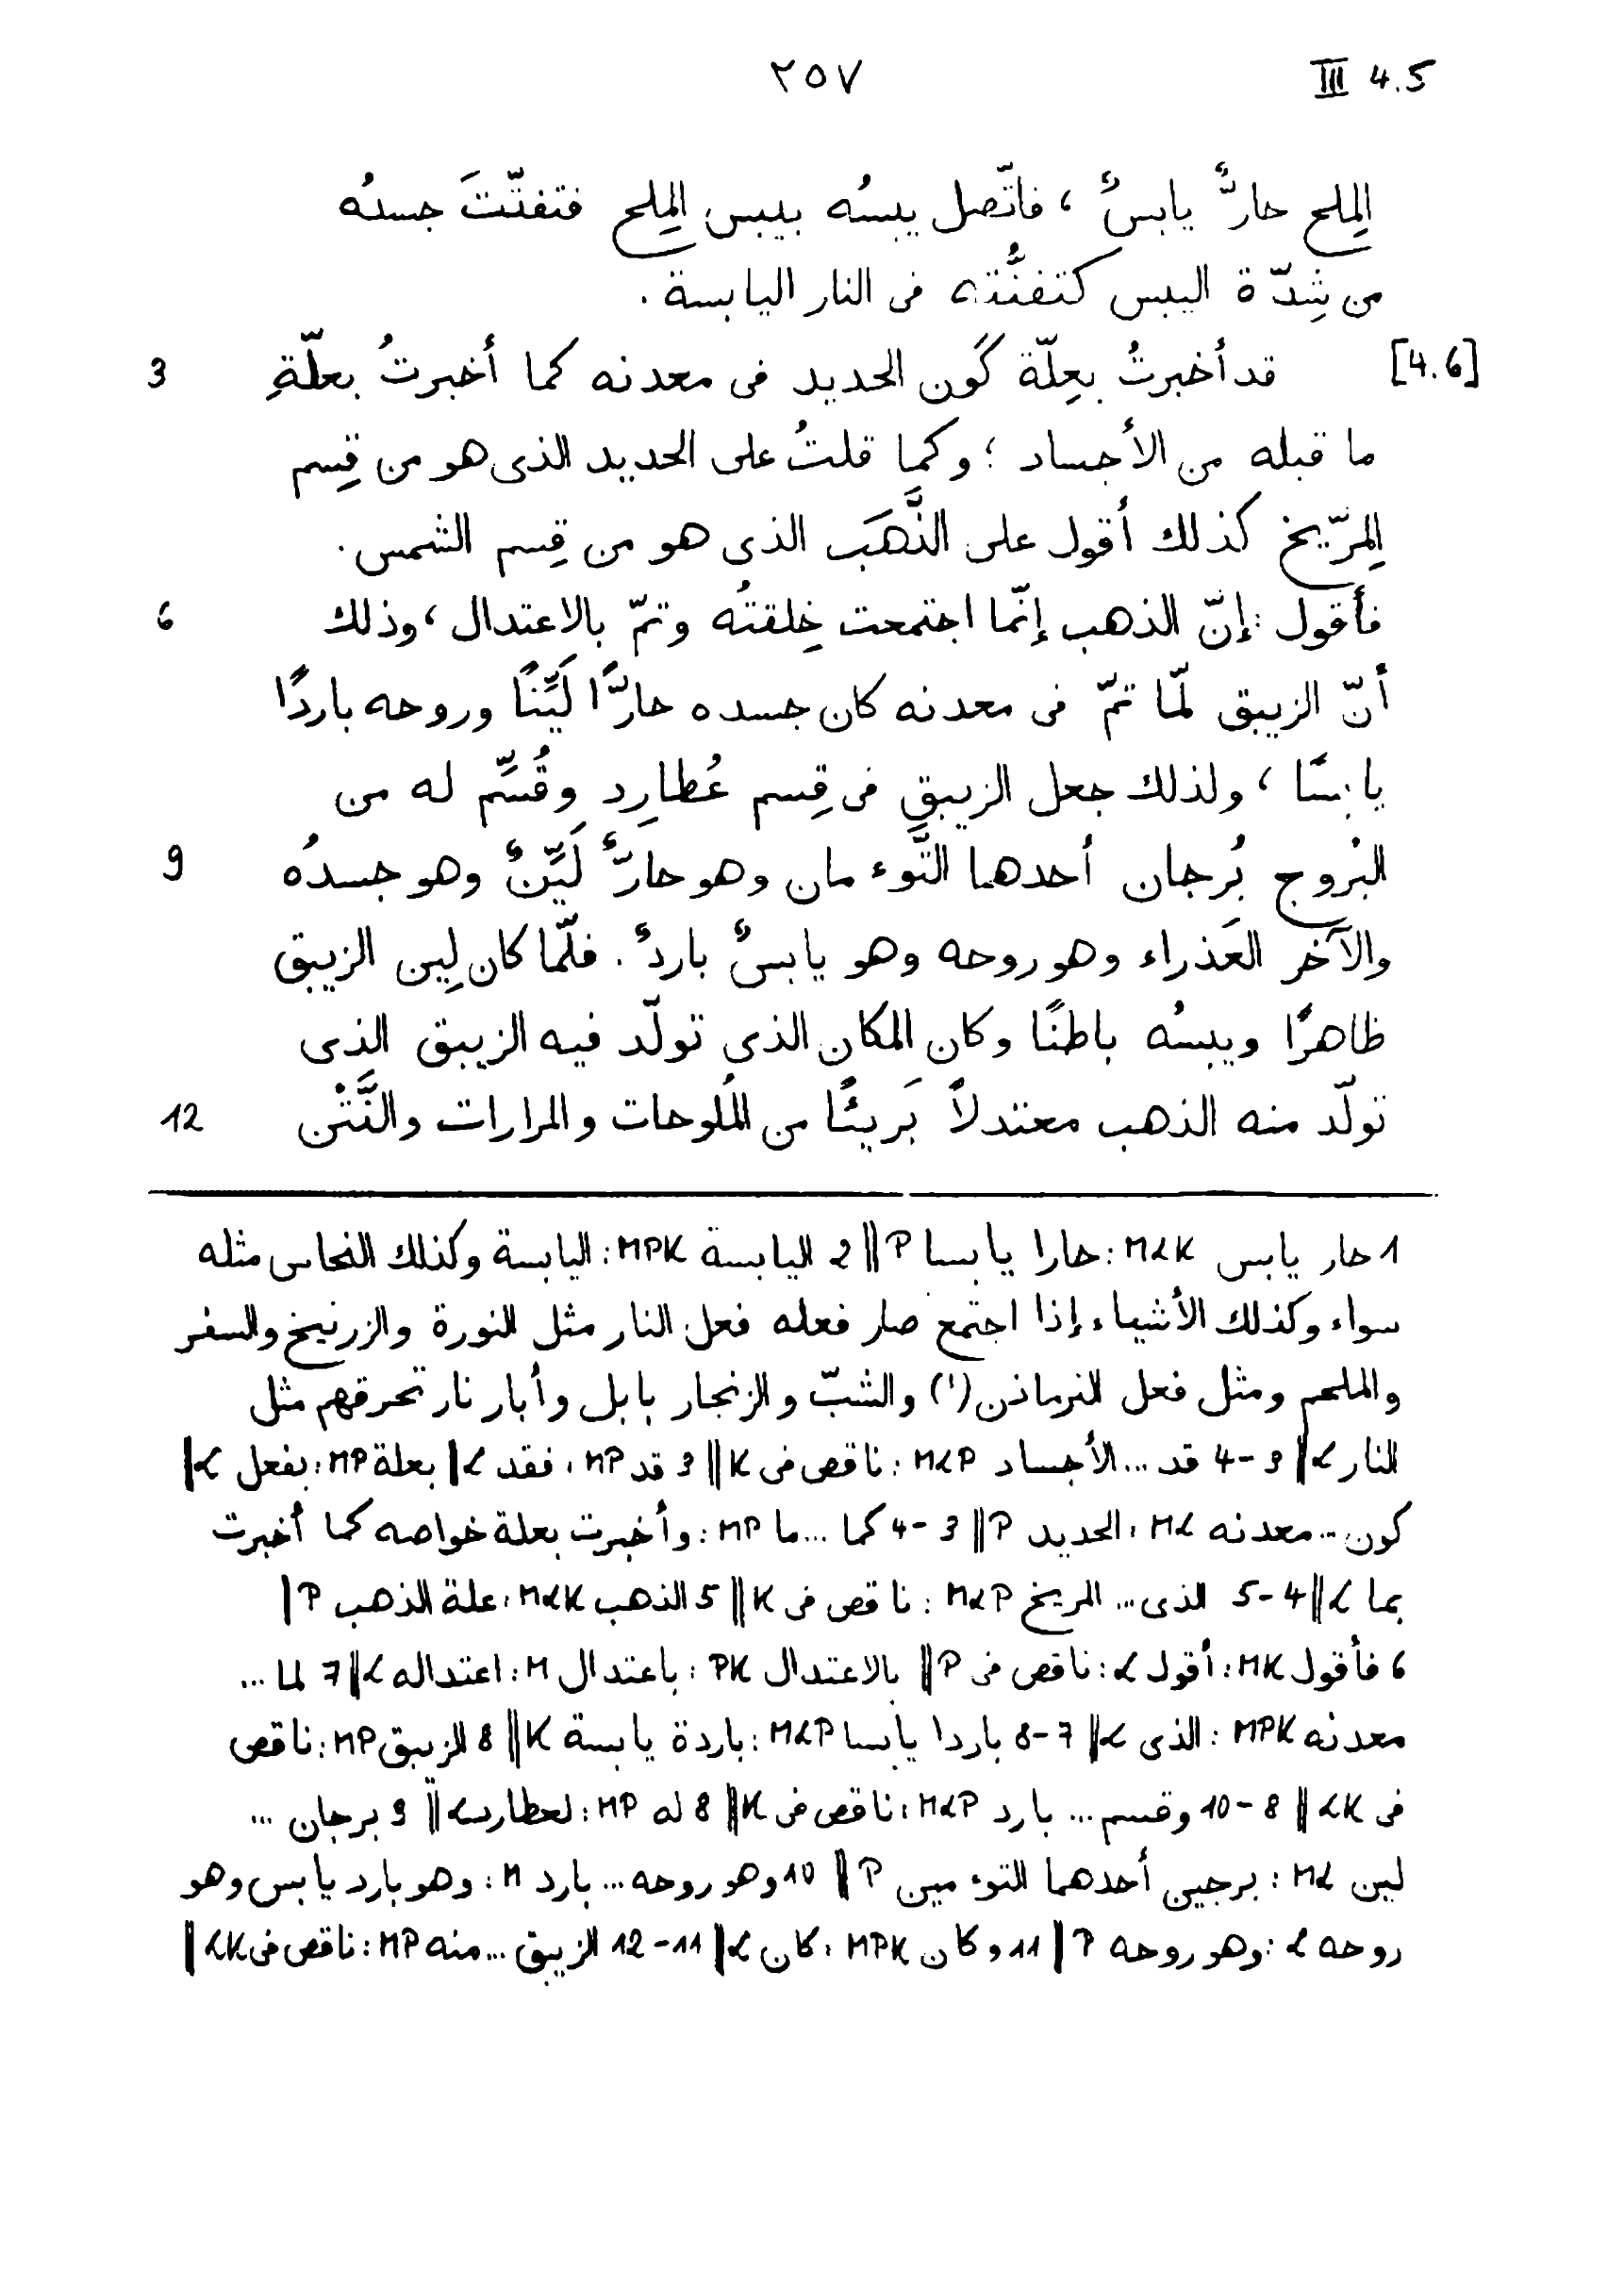 III 4.5 ٢٥٧
المِلح حارٌّ يابسٌ ، فاتّصل يبسُه بيبس المِلح فتفتّتَ جسدُه
من شِدّة اليبس كتفتُّته فى النار اليابسة .
[4.6] قد أخبرتُ بعِلّة كَون الحديد فى معدنه كما أخبرتُ بعلّةِ 3
ما قبله من الأجساد ؛ وكما قلتُ على الحديد الذى هو من قِسم
المِرّيخ كذلك أقول على الذَّهَب الذى هو من قِسم الشمس .
فأقول : إنّ الذهب إنّما اجتمعت خِلقتُه وتمّ بالاعتدال ، وذلك 6
أنّ الزيبق لمّا تمّ فى معدنه كان جسده حارًّا لَيِّنًا وروحه باردًا
يابسًا ، ولذلك جعل الزيبق فى قِسم عُطارِد وقُسِّم له من
البُروج بُرجان أحدهما التَّوءمان وهو حارٌّ لَيِّنٌ وهو جسدُه 9
والآخر العَذراء وهو روحه وهو يابسٌ باردٌ . فلمّا كان لِين الزيبق
ظاهرًا ويبسُه باطنًا وكان المكان الذى تولّد فيه الزيبق الذى
تولّد منه الذهب معتدلاً بَريئًا من المُلوحات والمرارات والنَّتْن 12
1 حار يابس MLK : حارا يابسا P || 2 اليابسة MPK : اليابسة وكذلك النحاس مثله
سواء وكذلك الأشياء إذا اجتمع صار فعله فعل النار مثل النورة والزرنيخ والسفر
والملحم ومثل فعل (!) والشبّ والزنجار بابل وأبار نار تحرقهم مثل
النار L || 3-4 قد ... الأجساد MLP : ناقص فى K || 3 قد MP : فقد L | بعلة MP : بفعل L |
كون ... معدنه ML : الحديد P || 3-4 كما ... ما MP : وأخبرت بعلة خواصه كما أخبرت
بما L || 4-5 الذى ... المريخ MLP : ناقص فى K || 5 الذهب MLK : علة الذهب P |
6 فأقول MK : أقول L : ناقص فى P || بالاعتدال PK : باعتدال M : اعتداله L || 7 لما ...
معدنه MPK : الذى L || 7-8 باردا يابسا MLP : باردة يابسة K || 8 الزيبق MP : ناقص
فى LK || 8-10 وقسم ... بارد MLP : ناقص فى K || 8 له MP : لعطارد L || 9 برجان ...
لين ML : برجين أحدهما التوءمين P || 10 وهو روحه ... بارد M : وهو بارد يابس وهو
روحه L : وهو روحه P | 11 وكان MPK : كان L || 11-12 الزيبق ... منه MP : ناقص فى LK |